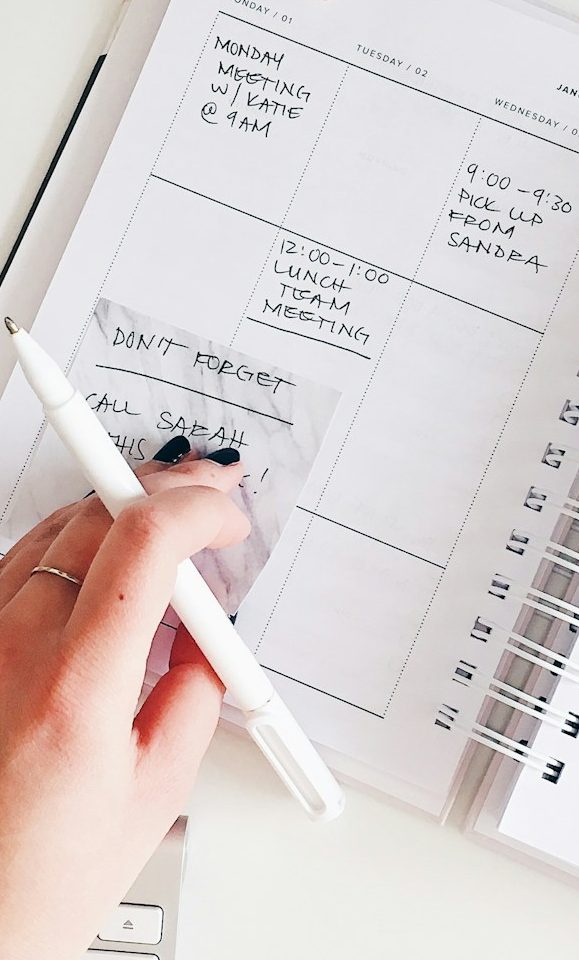 ONDAY / 01
MONDAY
MEETING
W/ KATIE
@ 9AM
TUESDAY / 02
12:00-1:00
LUNCH
TEAM
MEETING
JAN
WEDNESDAY / 0
9:00-9:30
PICK UP
FROM
SANDRA
DON'T FORGET
CALL SARAH
THIS
!